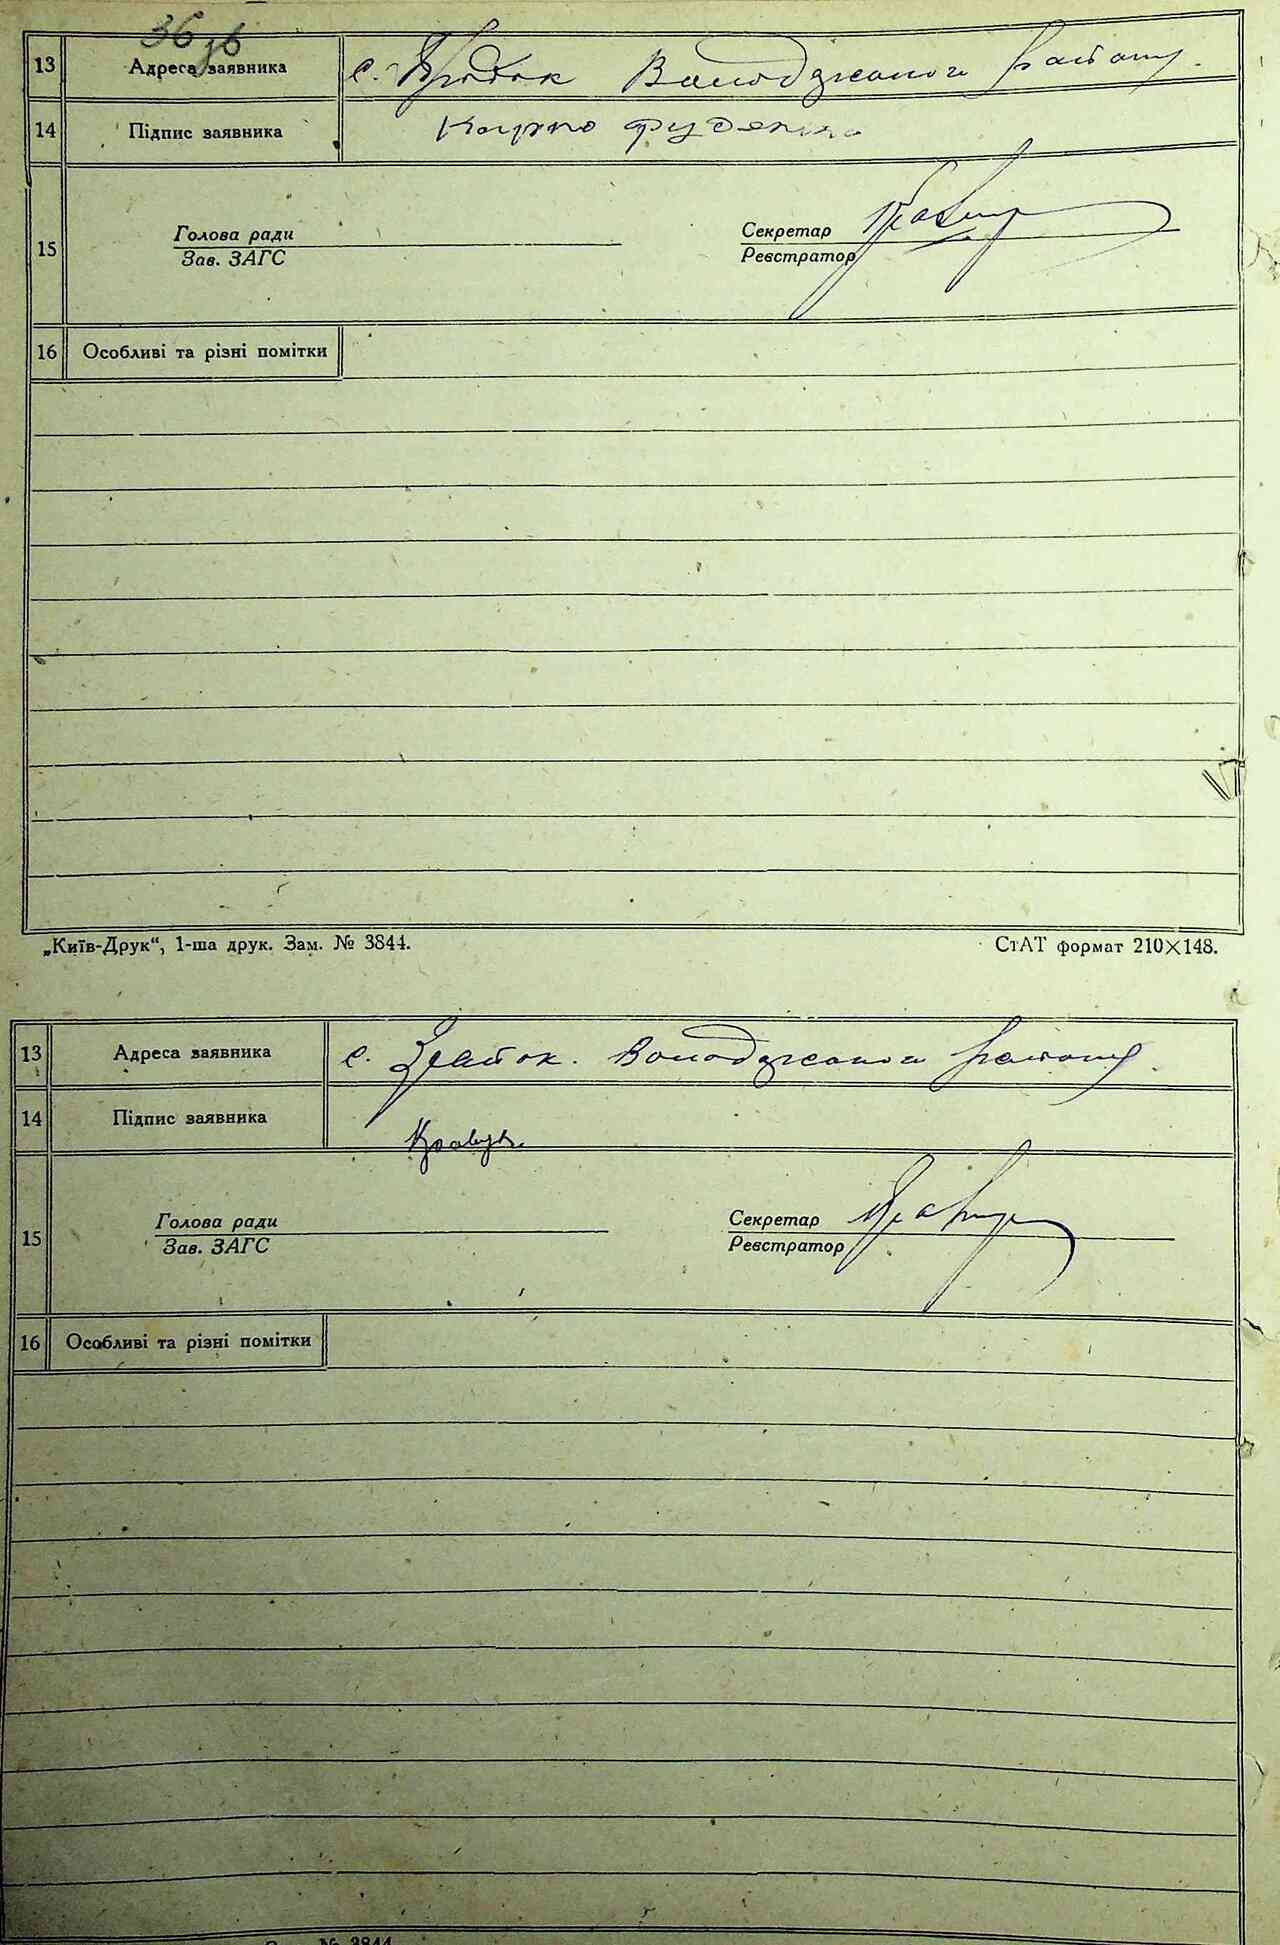 36 зв
13 Адреса заявника с. Володарського району.
14 Підпис заявника Руденко
15 Голова ради Секретар
Зав. ЗАГС Реєстратор
16 Особливі та різні помітки
„Київ-Друк“, 1-ша друк. Зам. № 3844. СтАТ формат 210×148.
13 Адреса заявника с. Володарського району.
14 Підпис заявника
15 Голова ради Секретар
Зав. ЗАГС Реєстратор
16 Особливі та різні помітки
№ 3844